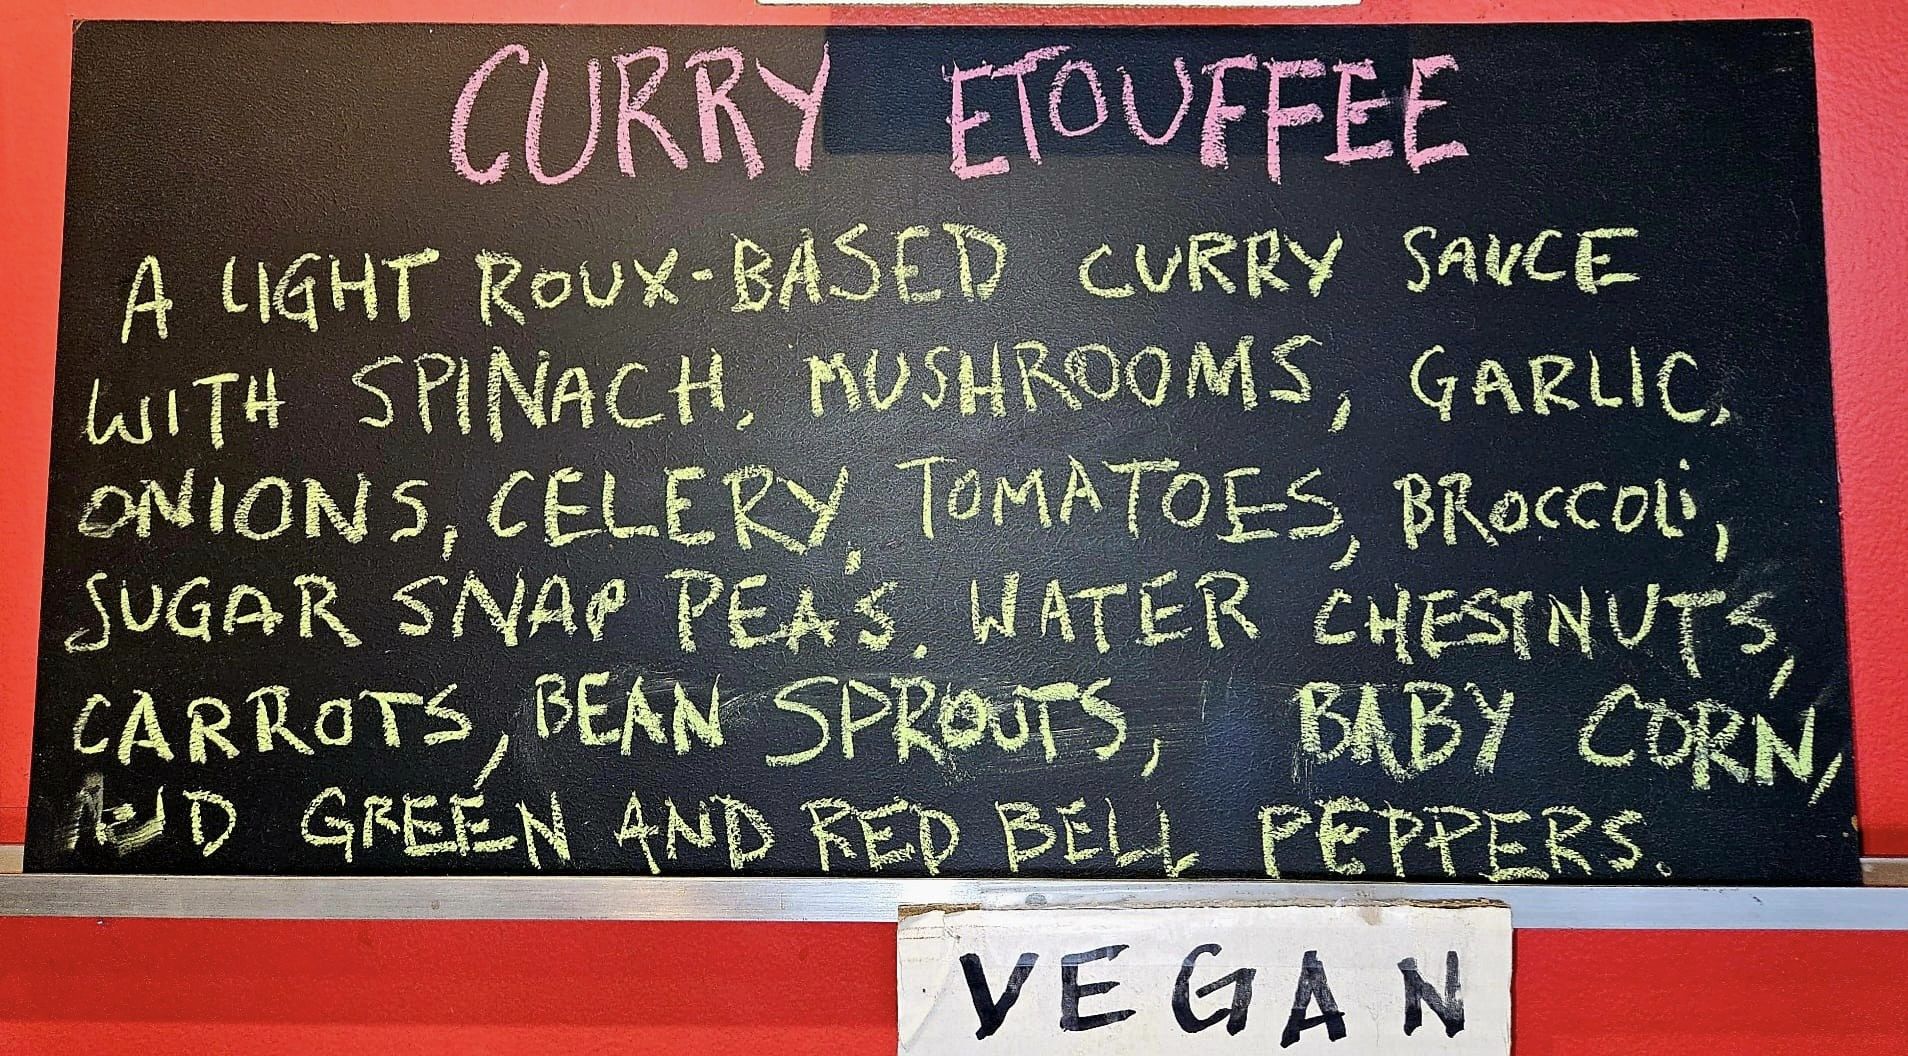 CURRY ETOUFFEE
A LIGHT ROUX-BASED CURRY SAUCE
WITH SPINACH, MUSHROOMS, GARLIC,
ONIONS, CELERY, TOMATOES, BROCCOLi,
SUGAR SNAP PEA'S, WATER CHESTNUTS,
CARROTS, BEAN SPROUTS, BABY CORN,
AND GREEN AND RED BELL PEPPERS.
VEGAN